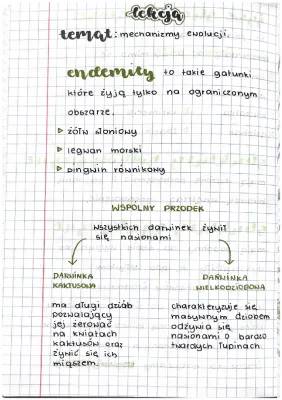 lekcja
temat: mechanizmy ewolucji.
endemity to takie gatunki
które żyją tylko na ograniczonym
obszarze.
▷ żółw słoniowy
▷ legwan morski
▷ pingwin równikowy
WSPÓLNY PRZODEK
wszystkich darwinek żywił
się nasionami
DARWINKA
KAKTUSOWA
ma długi dziób
pozwalający
jej żerować
na kwiatach
kaktusów oraz
żywić się ich
miąższem.
DARWINKA
WIELKODZIOBOWA
charakteryzuje się
masywnym dziobem
odżywia się
nasionami o bardzo
twardych łupinach